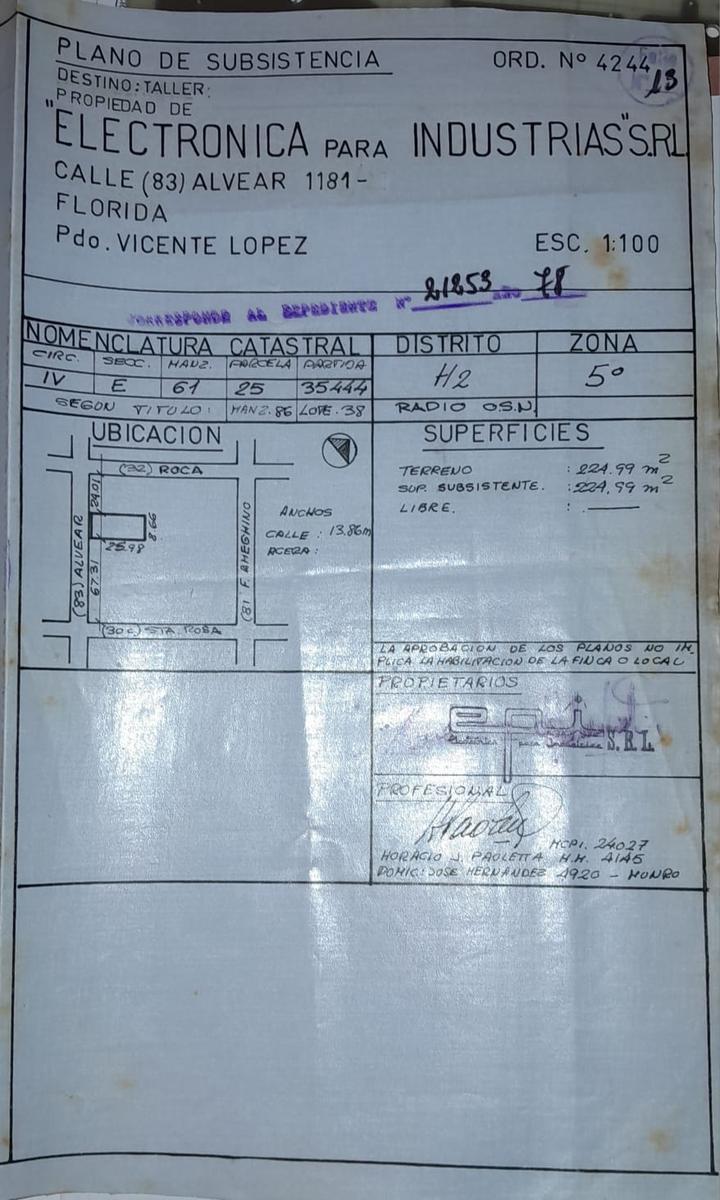 PLANO DE SUBSISTENCIA
ORD. Nº 4244
13
DESTINO: TALLER:
PROPIEDAD DE
"ELECTRONICA PARA INDUSTRIAS" S.R.L
CALLE (83) ALVEAR 1181-
FLORIDA
Pdo. VICENTE LOPEZ
ESC. 1:100
CORRESPONDE AL EXPEDIENTE Nº 21253 año 78
NOMENCLATURA CATASTRAL
DISTRITO
ZONA
CIRC. SECC. MANZ. PARCELA PARTIDA
IV E 61 25 35444
H2
5º
SEGON TITULO: MANZ. 86 LOTE. 38
RADIO O.S.N.
UBICACION
(32) ROCA
(83) ALVEAR
24.01
8.66
25.98
67.31
(81 F. AMEGHINO
(30c) STA. ROSA
ANCHOS
CALLE : 13.86m
ACERA :
SUPERFICIES
TERRENO : 224.99 m²
SUP. SUBSISTENTE. : 224.99 m²
LIBRE. : ———
LA APROBACION DE LOS PLANOS NO IM-
PLICA LA HABILITACION DE LA FINCA O LOCAL
PROPIETARIOS
epi
Electronica para Industrias S.R.L.
PROFESIONAL
MCPI. 24027
HORACIO J. PAOLETTA M.M. 4145
DOMIC: JOSE HERNANDEZ 4920 - MUNRO